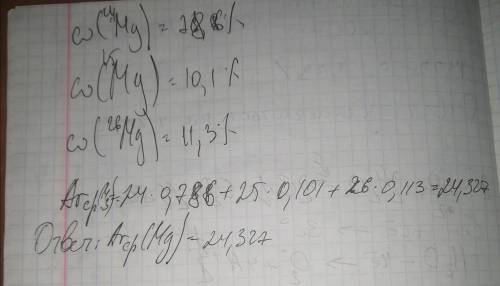 ω(²⁴Mg) = 78,6%
ω(²⁵Mg) = 10,1%
ω(²⁶Mg) = 11,3%
Ar ср(Mg) = 24 · 0,786 + 25 · 0,101 + 26 · 0,113 = 24,327
Ответ: Ar ср(Mg) = 24,327